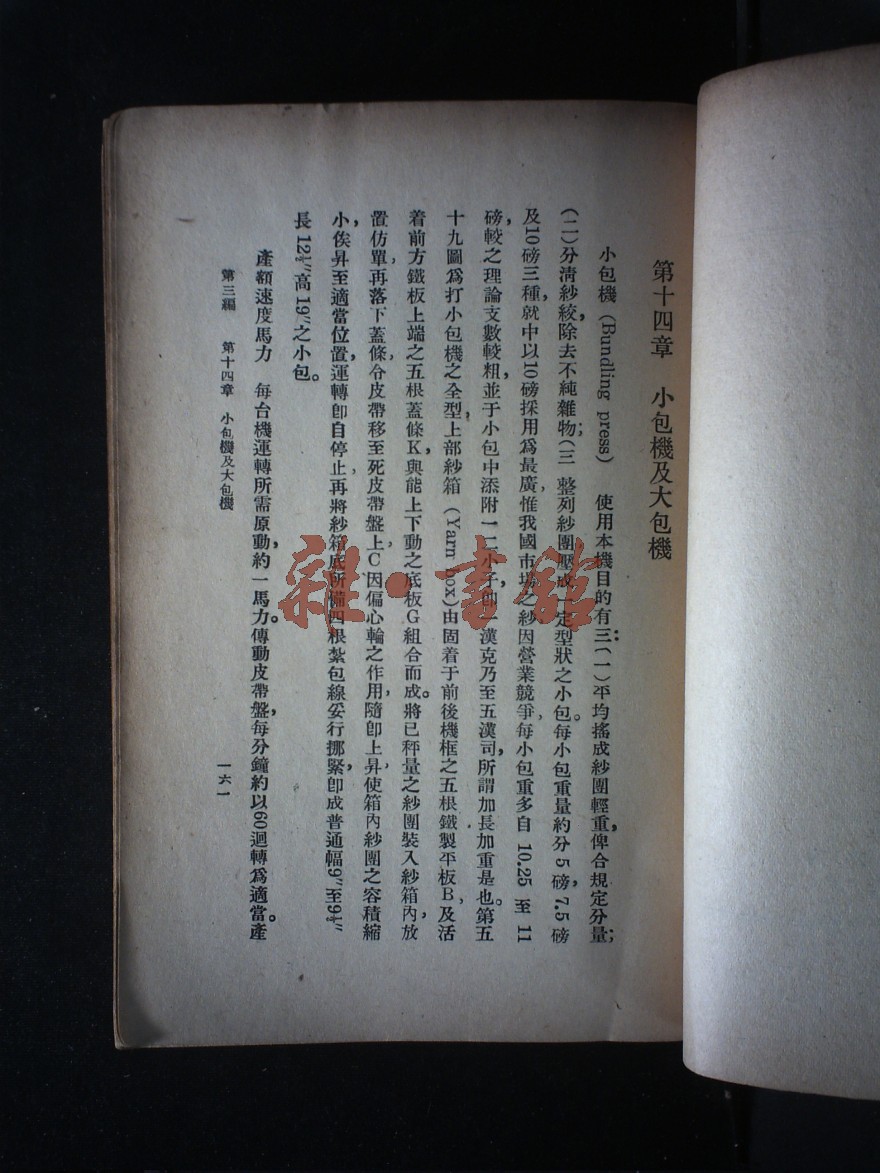 第十四章　小包機及大包機
小包機 (Bundling press)　使用本機目的有三：(一)平均搖成紗團輕重，俾合規定分量；
(二)分清紗絞，除去不純雜物；(三 整列紗團壓成一定型狀之小包。每小包重量約分 5 磅，7.5 磅
及10磅三種，就中以10磅採用爲最廣，惟我國市場之紗因營業競爭，每小包重多自 10.25 至 11
磅，較之理論支數較粗，並于小包中添附一二小子，卽一漢克乃至五漢司，所謂加長加重是也。第五
十九圖爲打小包機之全型，上部紗箱 (Yarn box)由固着于前後機框之五根鐵製平板B，及活
着前方鐵板上端之五根蓋條K，與能上下動之底板G組合而成。將已秤量之紗團裝入紗箱內，放
置仿單，再落下蓋條，令皮帶移至死皮帶盤上，C因偏心輪之作用，隨卽上昇，使箱內紗團之容積縮
小，俟昇至適當位置，運轉卽自停止，再將紗箱底所備四根紮包線妥行挪緊，卽成普通幅9″至9½″
長 12½″高 19″之小包。
產額速度馬力　每台機運轉所需原動，約一馬力。傳動皮帶盤，每分鐘約以60迴轉爲適當。產
第三編　第十四章　小包機及大包機
一六一
雜·書館